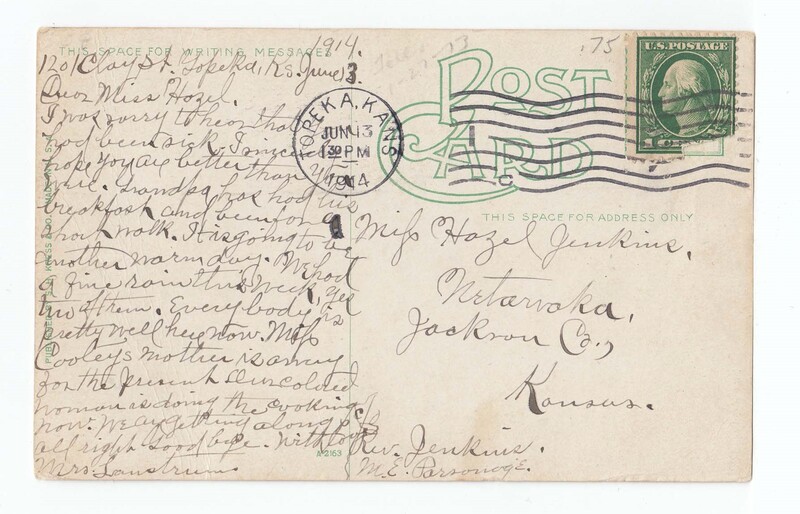 THIS SPACE FOR WRITING MESSAGES
1914.
1201 Clay St. Topeka, Ks. June 13.
Dear Miss Hazel.
I was sorry to hear that you
had been sick. I sincerely
hope you are better than
me. Grandpa has had his
breakfast and been for a
short walk. It is going to be
another warm day. We had
a fine rain this week, yes
two of them. Everybody is
pretty well here now. Miss
Cooleys mother is away
for the present. Our colored
woman is doing the cooking
now. We are getting along
all right. Good bye. With love
Mrs.
TOPEKA, KANS.
JUN 13
130 PM
1914
1
.75
U.S. POSTAGE
POST
CARD
THIS SPACE FOR ADDRESS ONLY
Miss Hazel Jenkins,
Netawaka,
Jackson Co.,
Kansas.
c/o
Rev. Jenkins.
M.E. Parsonage.
A-2163